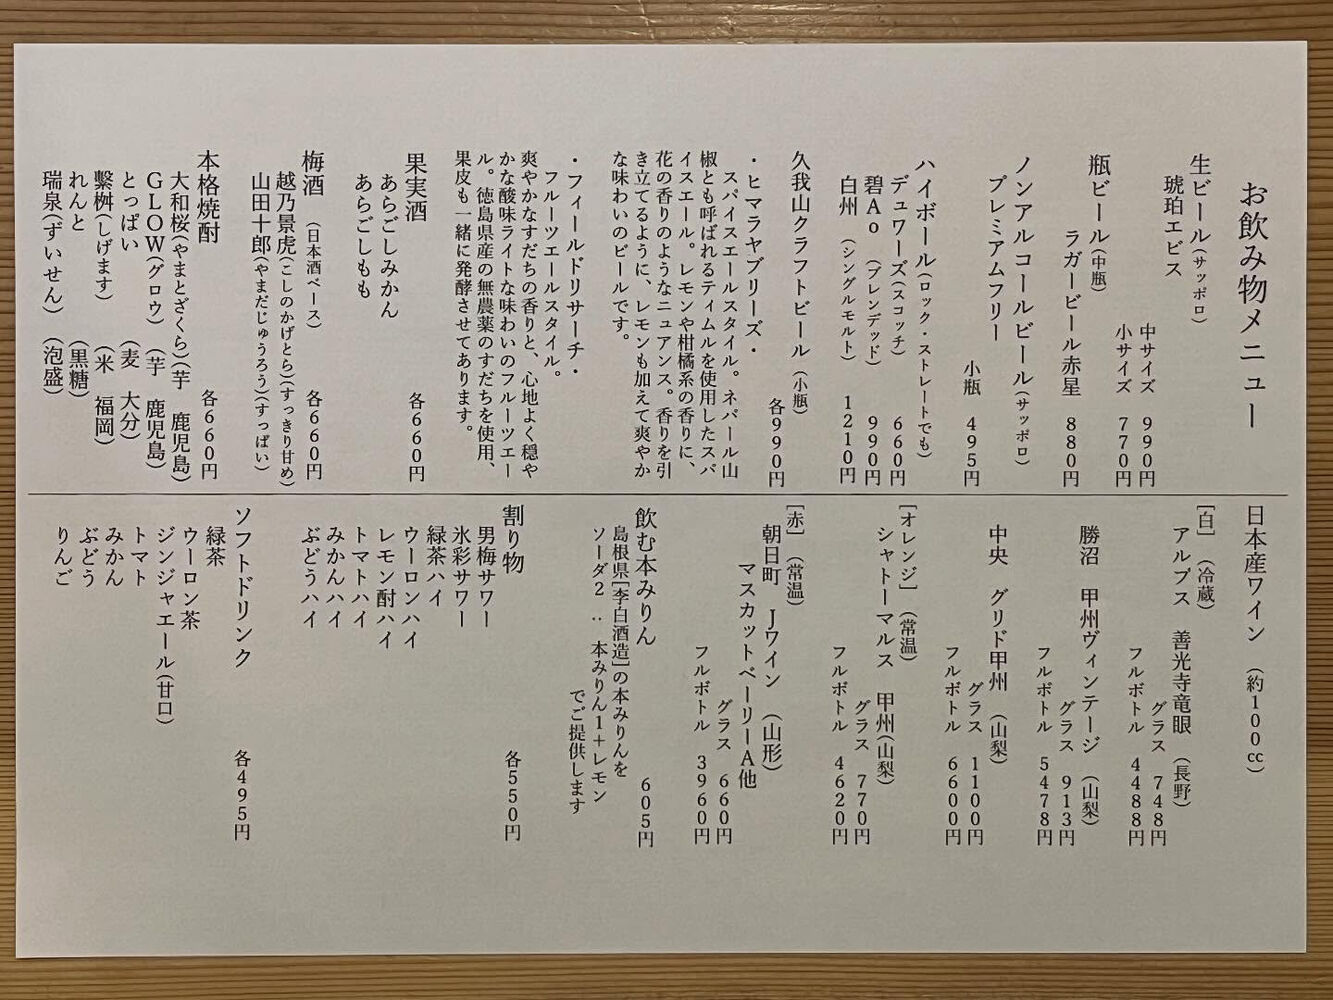 お飲み物メニュー
生ビール(サッポロ)
琥珀エビス
中サイズ 990円
小サイズ 770円
瓶ビール(中瓶)
ラガービール赤星 880円
ノンアルコールビール(サッポロ)
プレミアムフリー
小瓶 495円
ハイボール(ロック・ストレートでも)
デュワーズ(スコッチ) 660円
碧Ao (ブレンデッド) 990円
白州 (シングルモルト) 1210円
久我山クラフトビール(小瓶)
各990円
・ヒマラヤブリーズ・
スパイスエールスタイル。ネパール山
椒とも呼ばれるティムルを使用したスパ
イスエール。レモンや柑橘系の香りに、
花の香りのようなニュアンス。香りを引
き立てるように、レモンも加えて爽やか
な味わいのビールです。
・フィールドリサーチ・
フルーツエールスタイル。
爽やかなすだちの香りと、心地よく穏や
かな酸味ライトな味わいのフルーツエー
ル。徳島県産の無農薬のすだちを使用、
果皮も一緒に発酵させてあります。
果実酒 各660円
あらごしみかん
あらごしもも
梅酒 (日本酒ベース) 各660円
越乃景虎(こしのかげとら)(すっきり甘め)
山田十郎(やまだじゅうろう)(すっぱい)
本格焼酎 各660円
大和桜(やまとざくら)(芋 鹿児島)
GLOW(グロウ) (芋 鹿児島)
とっぱい (麦 大分)
繋桝(しげます) (米 福岡)
れんと (黒糖)
瑞泉(ずいせん) (泡盛)
日本産ワイン (約100cc)
[白] (冷蔵)
アルプス 善光寺竜眼 (長野)
グラス 748円
フルボトル 4488円
勝沼 甲州ヴィンテージ (山梨)
グラス 913円
フルボトル 5478円
中央 グリド甲州 (山梨)
グラス 1100円
フルボトル 6600円
[オレンジ] (常温)
シャトーマルス 甲州(山梨)
グラス 770円
フルボトル 4620円
[赤] (常温)
朝日町 Jワイン (山形)
マスカットベーリーA他
グラス 660円
フルボトル 3960円
飲む本みりん 605円
島根県[李白酒造]の本みりんを
ソーダ2:本みりん1+レモン
でご提供します
割り物 各550円
男梅サワー
氷彩サワー
緑茶ハイ
ウーロンハイ
レモン酎ハイ
トマトハイ
みかんハイ
ぶどうハイ
ソフトドリンク 各495円
緑茶
ウーロン茶
ジンジャエール(甘口)
トマト
みかん
ぶどう
りんご